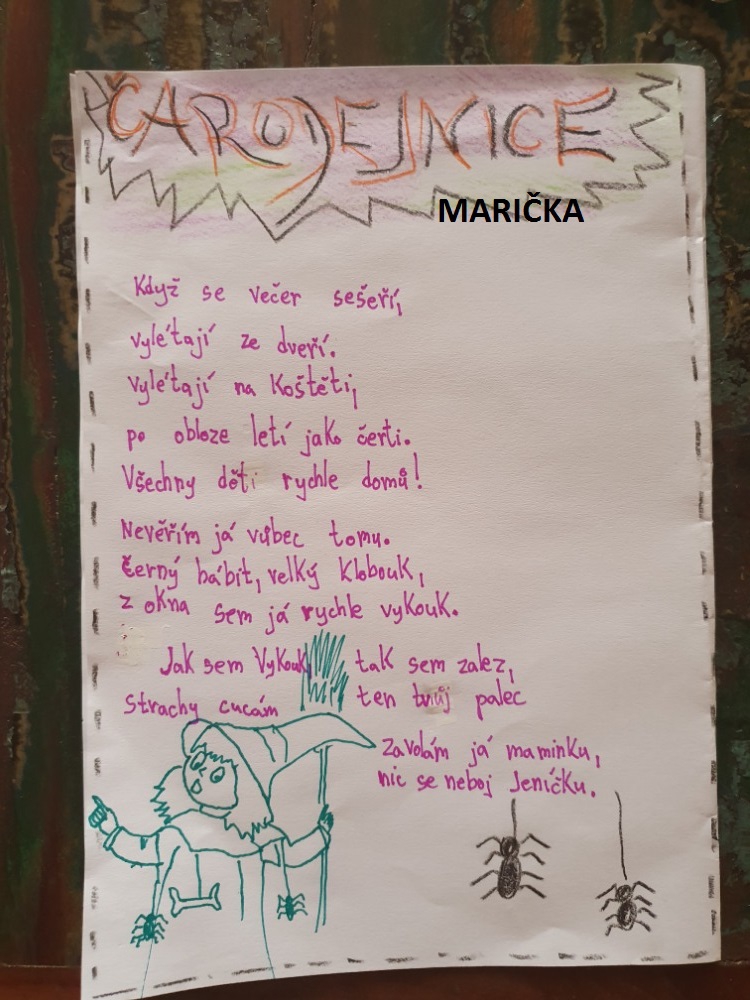 ČARODEJNICE
MARIČKA
Když se večer sešeří,
vylétají ze dveří.
vylétají na Koštěti,
po obloze letí jako čerti.
Všechny děti rychle domů!
Nevěřím já vůbec tomu.
černý hábit, velký Klobouk,
z okna sem já rychle vykouk.
Jak sem Vykouk, tak sem zalez,
Strachy cucám ten tvůj palec
Zavolám já maminku,
nic se neboj Jeníčku.